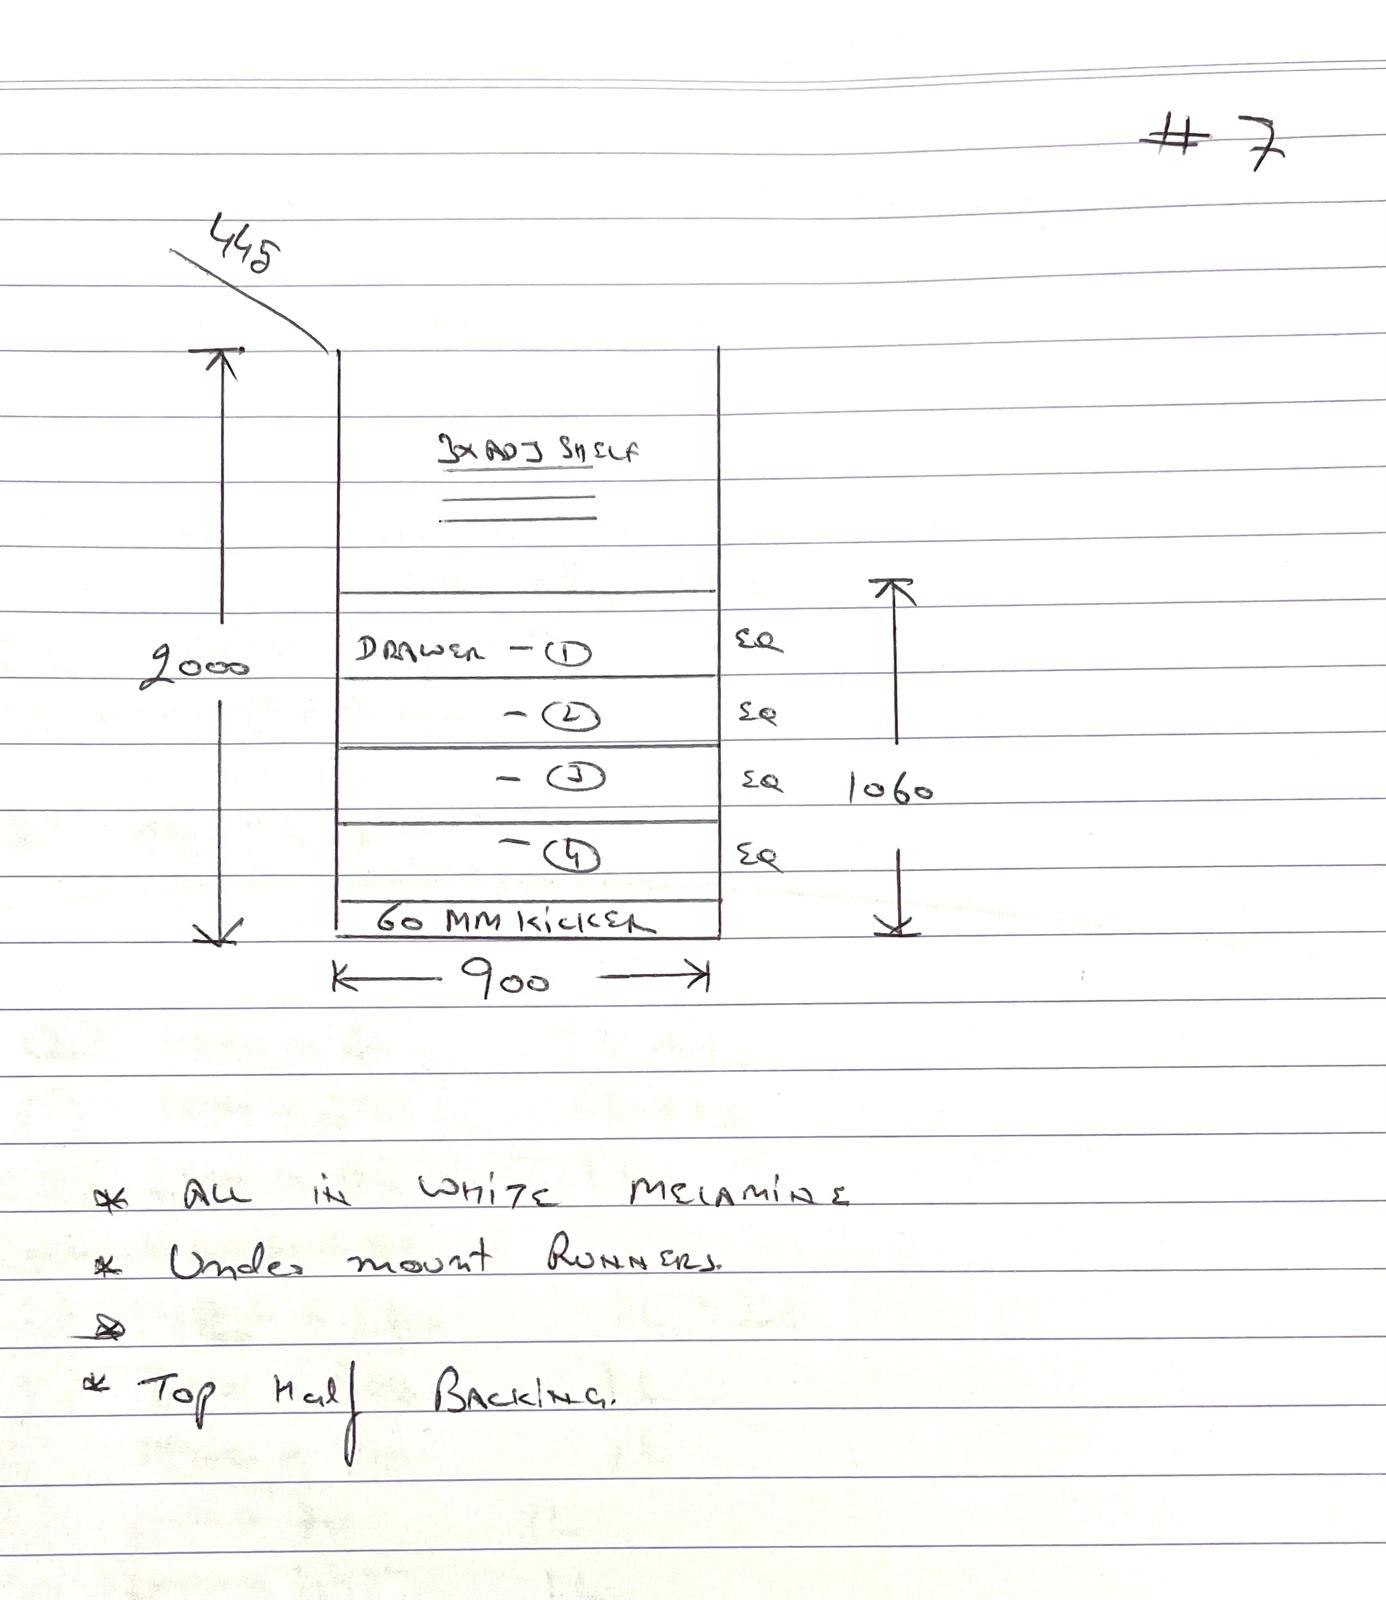 # 7
445
3x ADJ SHELF
DRAWER - 1 EQ
2000
- 2 EQ
- 3 EQ 1060
- 4 EQ
60 MM KiCKER
900
* ALL iN WHiTE MELAMiNE
* Under mount RUNNERS.
* Top Half BACKING.